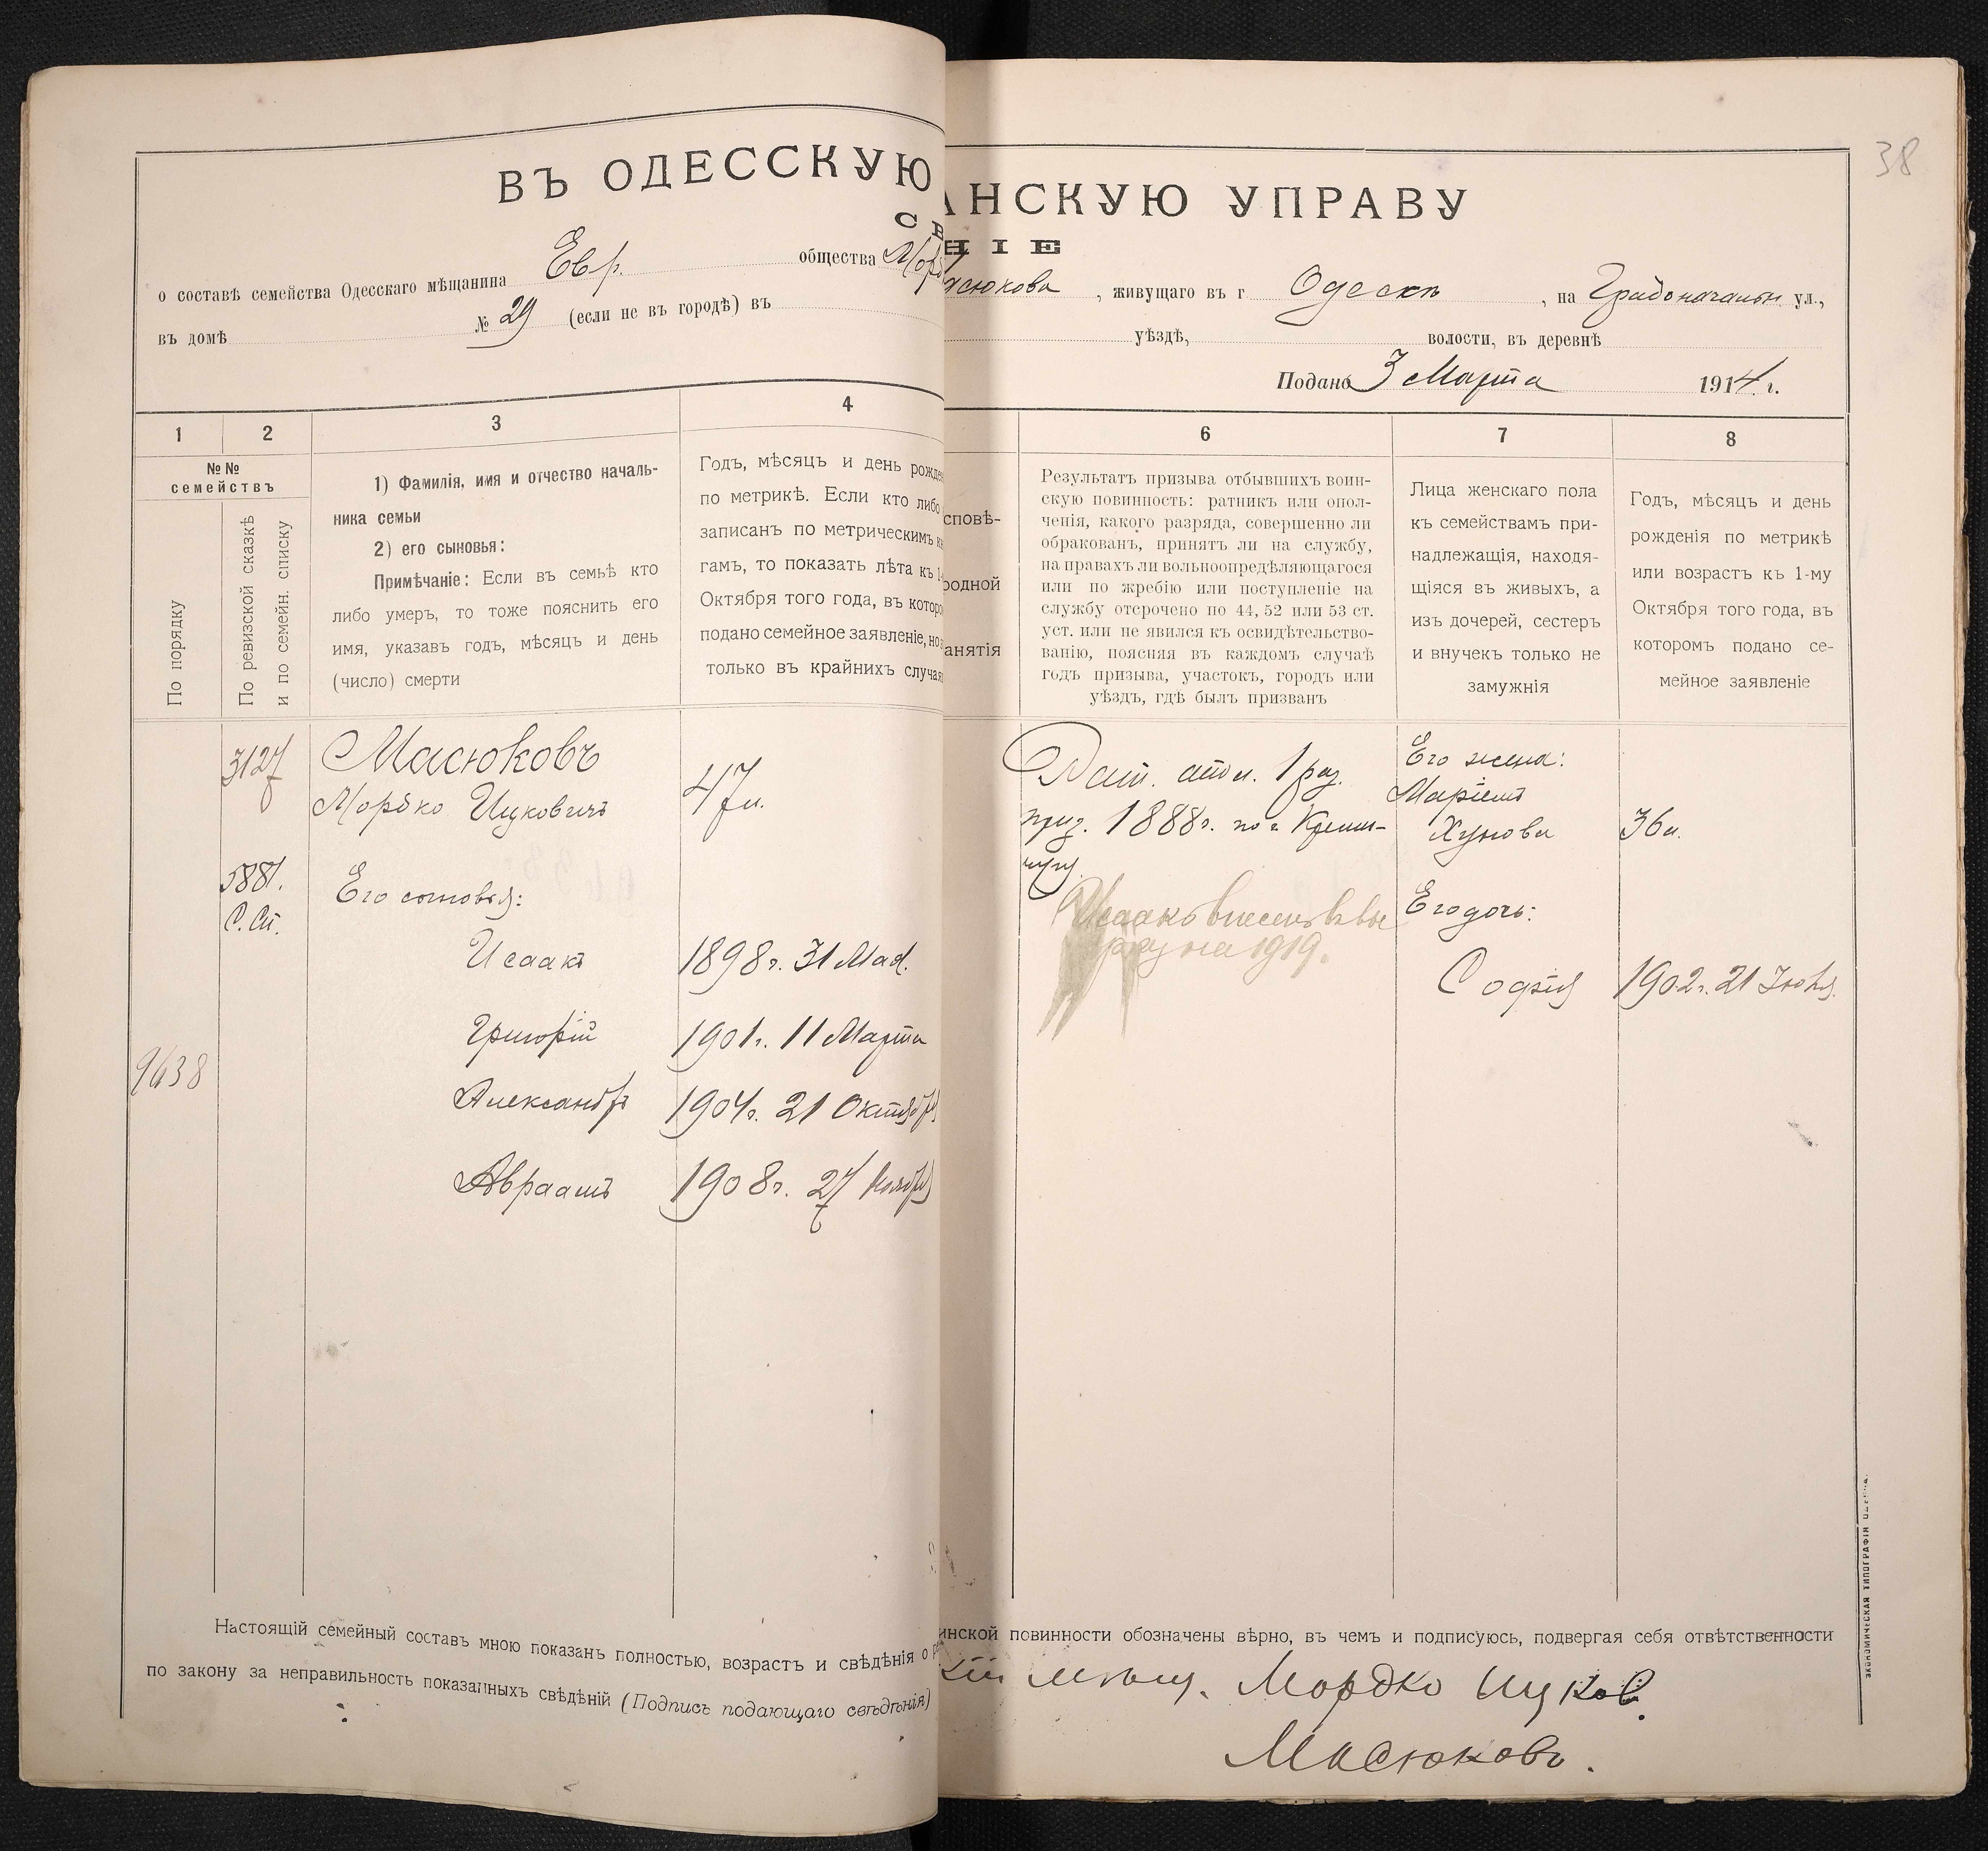 38
ВЪ ОДЕССКУЮ
АНСКУЮ УПРАВУ
СВ
НІЕ
о составѣ семейства Одесскаго мѣщанина Евр. общества Мор
сюкова, живущаго въ г Одессѣ, на Градоначальн ул.,
въ домѣ № 29 (если не въ городѣ) въ
уѣздѣ, волости, въ деревнѣ
Подано 3 Марта 1914 г.
1
2
3
4
6
7
8
№№
семействъ
По порядку
По ревизской сказкѣ
и по семейн. списку
1) Фамилія, имя и отчество началь-
ника семьи
2) его сыновья:
Примѣчаніе: Если въ семьѣ кто
либо умеръ, то тоже пояснить его
имя, указавъ годъ, мѣсяцъ и день
(число) смерти
Годъ, мѣсяцъ и день рожде
по метрикѣ. Если кто либо
записанъ по метрическимъ к
гамъ, то показать лѣта къ 1-
Октября того года, въ которо
подано семейное заявленіе, но
только въ крайнихъ случая
сповѣ-
родной
анятія
Результатъ призыва отбывшихъ воин-
скую повинность: ратникъ или опол-
ченія, какого разряда, совершенно ли
обракованъ, принятъ ли на службу,
на правахъ ли вольноопредѣляющагося
или по жребію или поступленіе на
службу отсрочено по 44, 52 или 53 ст.
уст. или не явился къ освидѣтельство-
ванію, поясняя въ каждомъ случаѣ
годъ призыва, участокъ, городъ или
уѣздъ, гдѣ былъ призванъ
Лица женскаго пола
къ семействамъ при-
надлежащія, находя-
щіяся въ живыхъ, а
изъ дочерей, сестеръ
и внучекъ только не
замужнія
Годъ, мѣсяцъ и день
рожденія по метрикѣ
или возрастъ къ 1-му
Октября того года, въ
которомъ подано се-
мейное заявленіе
3127
Масюковъ
Мордко Ицковичъ
47 л.
5881.
С. Сп.
Его сыновья:
Исаакъ 1898 г. 31 Мая.
Григорій 1901 г. 11 Марта
9638
Александръ 1904 г. 21 Октября
Авраамъ 1908 г. 27 Ноября
Рат. опол. 1 раз.
приз. 1888 г. по г. Кремен-
чугу.
Исаакъ внесенъ въ
на 1919.
Его жена:
Маріемъ
36 л.
Его дочь:
Софія 1902 г. 21 Іюля.
Настоящій семейный составъ мною показанъ полностью, возрастъ и свѣдѣнія о
инской повинности обозначены вѣрно, въ чемъ и подписуюсь, подвергая себя отвѣтственности
по закону за неправильность показанныхъ свѣдѣній (Подпись подающаго свѣдѣнія)
кій мѣщ. Мордко Ицков.
Масюковъ.
ЭКОНОМИЧЕСКАЯ ТИПОГРАФІЯ